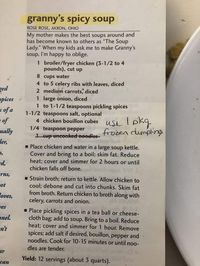 granny's spicy soup
ROSE ROSE, MIXON, OHIO
My mother makes the best soups around and
has become known to others as "The Soup
Lady." When my kids ask me to make Granny's
soup, I'm happy to oblige.
1 broiler/fryer chicken (3-1/2 to 4
pounds), cut up
8 cups water
4 to 5 celery ribs with leaves, diced
2 medium carrots, diced
1 large onion, diced
1 to 1-1/2 teaspoons pickling spices
1-1/2 teaspoons salt, optional
4 chicken bouillon cubes
use 1 pkg
1/4 teaspoon pepper
frozen dumplings
1 cup uncooked noodles
■ Place chicken and water in a large soup kettle.
Cover and bring to a boil; skim fat. Reduce
heat; cover and simmer for 2 hours or until
chicken falls off bone.
■ Strain broth; return to kettle. Allow chicken to
cool; debone and cut into chunks. Skim fat
from broth. Return chicken to broth along with
celery, carrots and onion.
■ Place pickling spices in a tea ball or cheese-
cloth bag; add to soup. Bring to a boil. Reduce
heat; cover and simmer for 1 hour. Remove
spices; add salt if desired, bouillon, pepper and
noodles. Cook for 10-15 minutes or until noo-
dles are tender.
Yield: 12 servings (about 3 quarts).